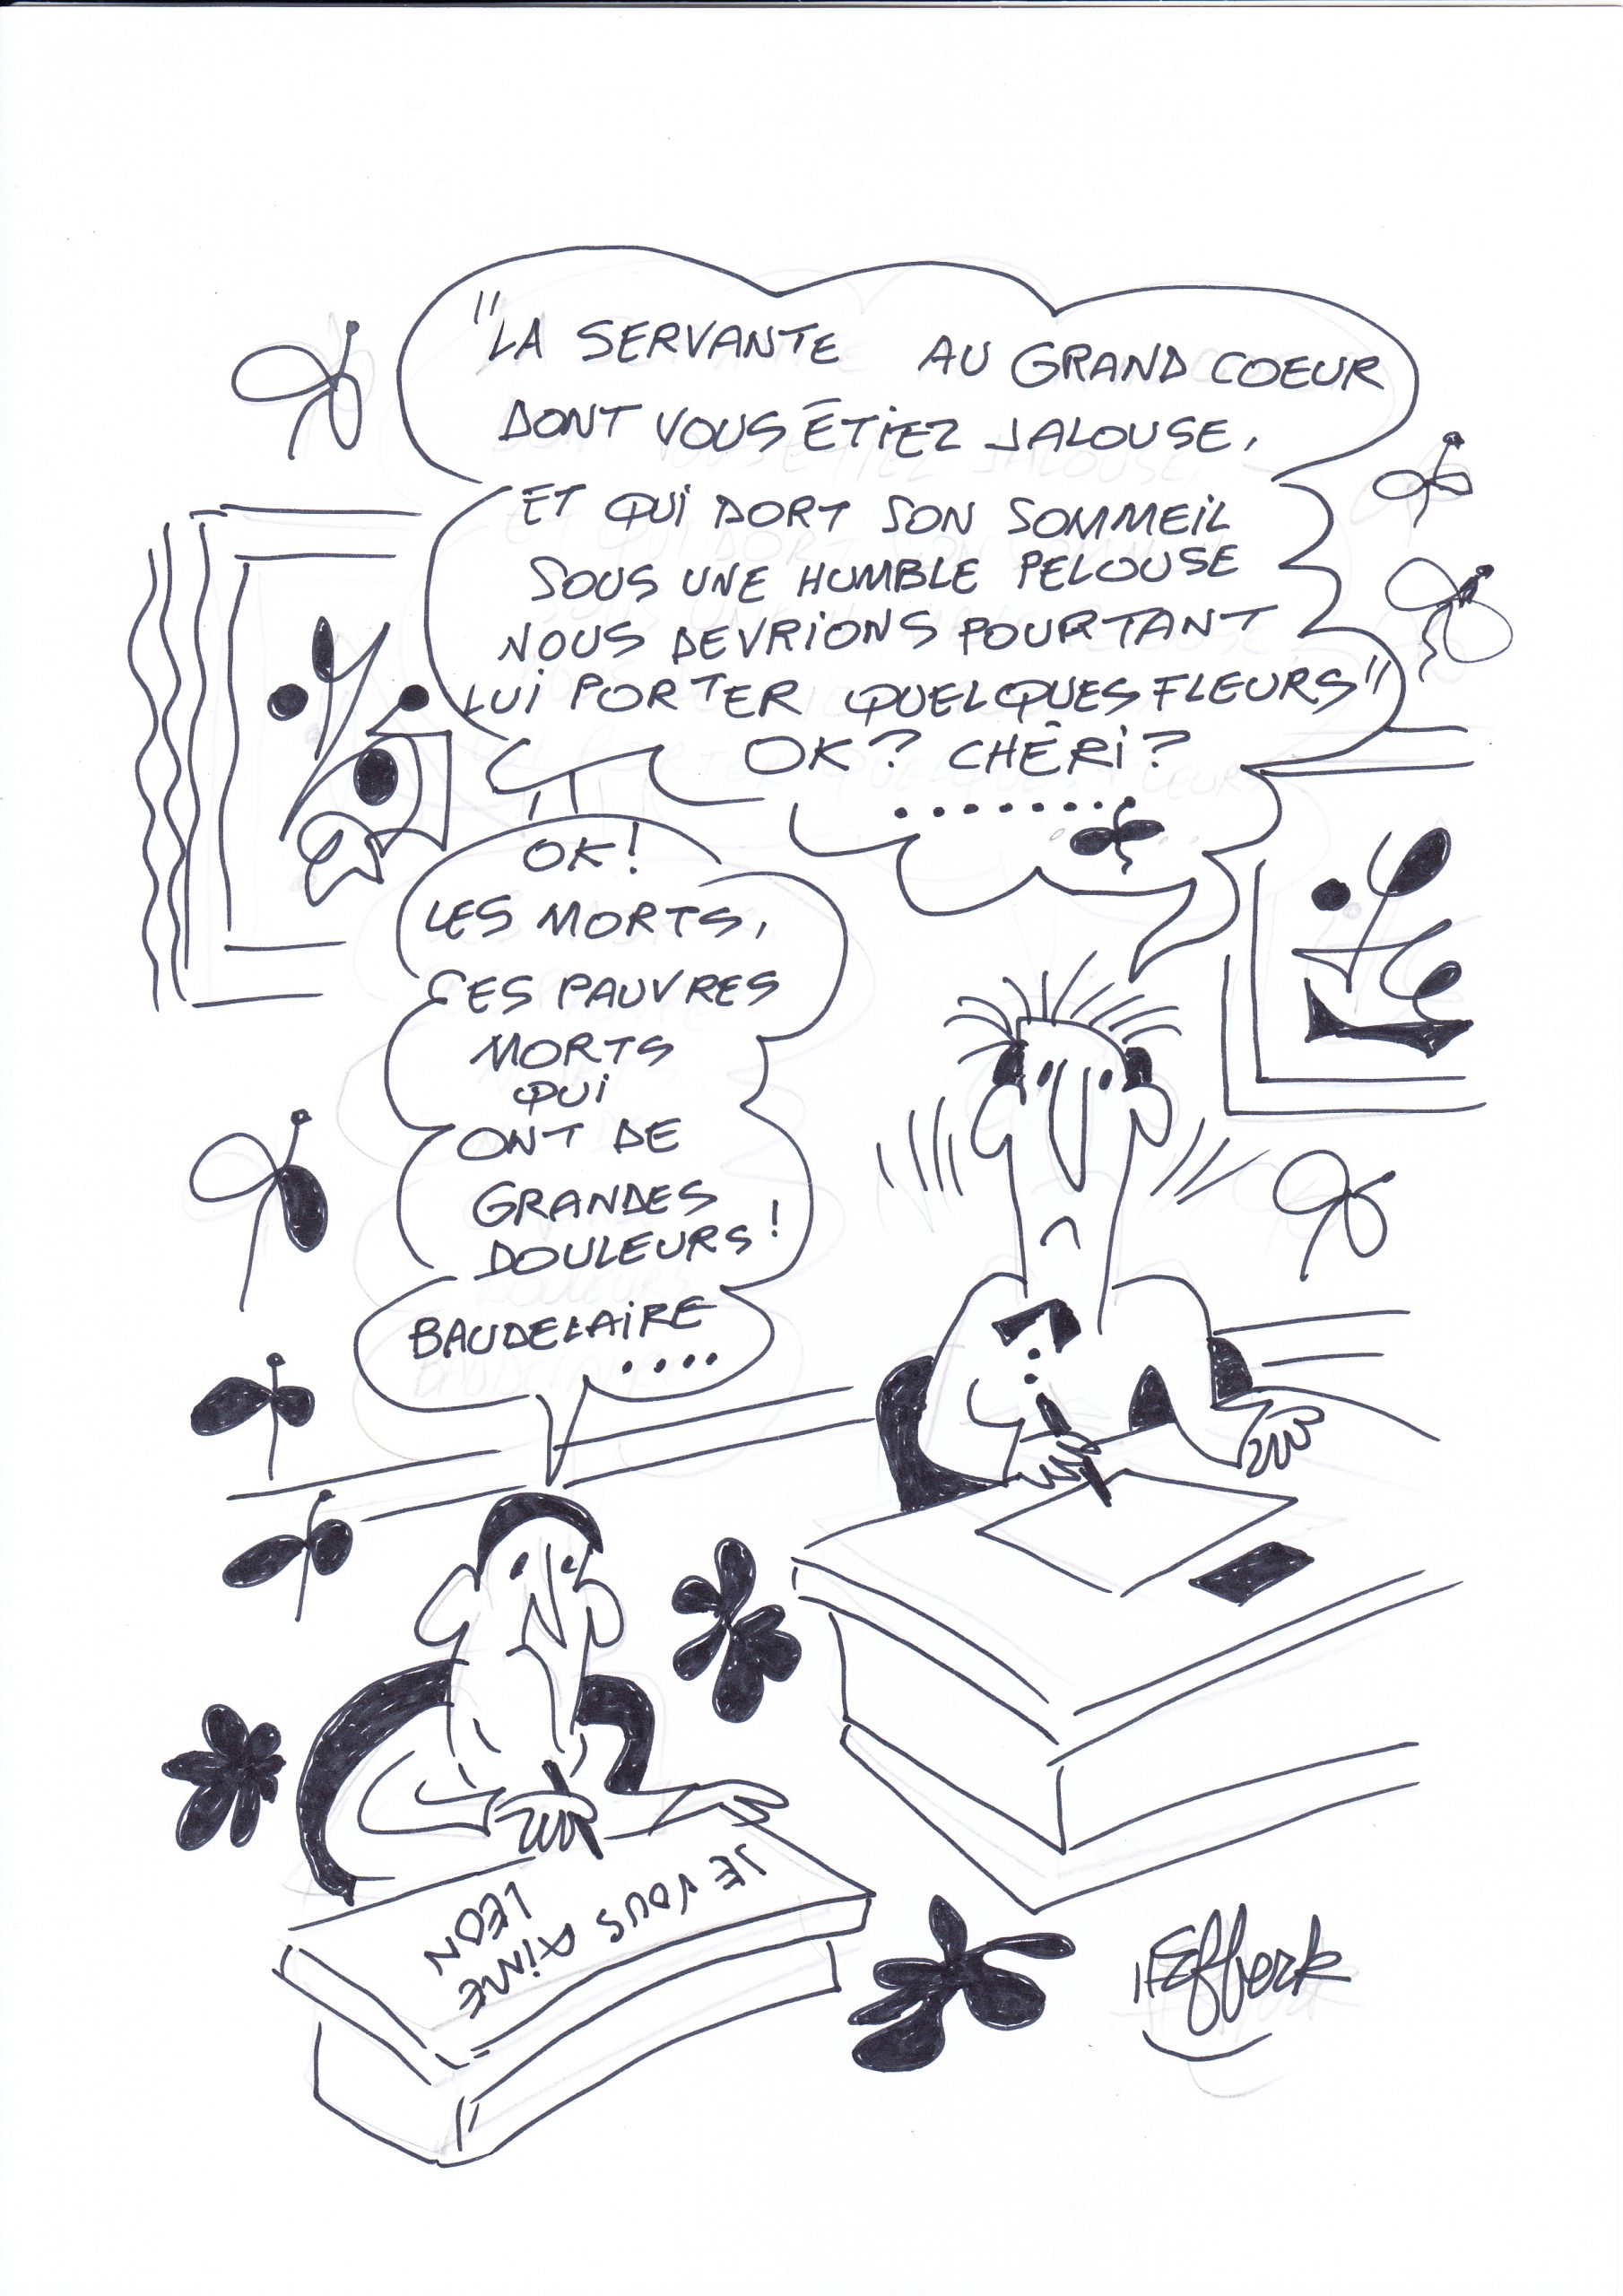 "LA SERVANTE AU GRAND COEUR
DONT VOUS ÉTIEZ JALOUSE,
ET QUI DORT SON SOMMEIL
SOUS UNE HUMBLE PELOUSE
NOUS DEVRIONS POURTANT
LUI PORTER QUELQUES FLEURS"
OK? CHÊRI?
........
OK!
LES MORTS,
CES PAUVRES
MORTS
QUI
ONT DE
GRANDES
DOULEURS!
BAUDELAIRE
....
JE VOUS AIME
LEON
Effberk